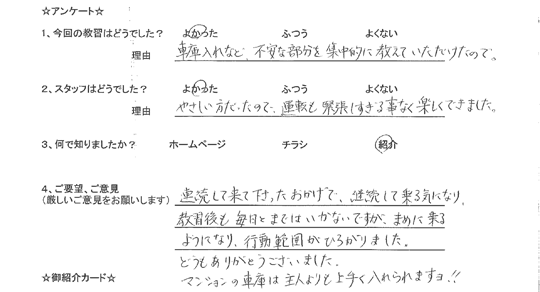 ☆アンケート☆
1、今回の教習はどうでした？ よかった ふつう よくない
理由 車庫入れなど、不安な部分を集中的に教えていただけたので。
2、スタッフはどうでした？ よかった ふつう よくない
理由 やさしい方だったので、運転も緊張しすぎる事なく楽しくできました。
3、何で知りましたか？ ホームページ チラシ 紹介
4、ご要望、ご意見
(厳しいご意見をお願いします)
連続して来て下さったおかげで、継続して乗る気になり、
教習後も毎日とまではいかないですが、まめに乗る
ようになり、行動範囲がひろがりました。
どうもありがとうございました。
マンションの車庫は主人よりも上手く入れられますヨ!!
☆御紹介カード☆